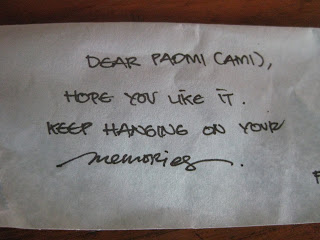 DEAR PADMI (AMI),
HOPE YOU LIKE IT.
KEEP HANGING ON YOUR
memories.